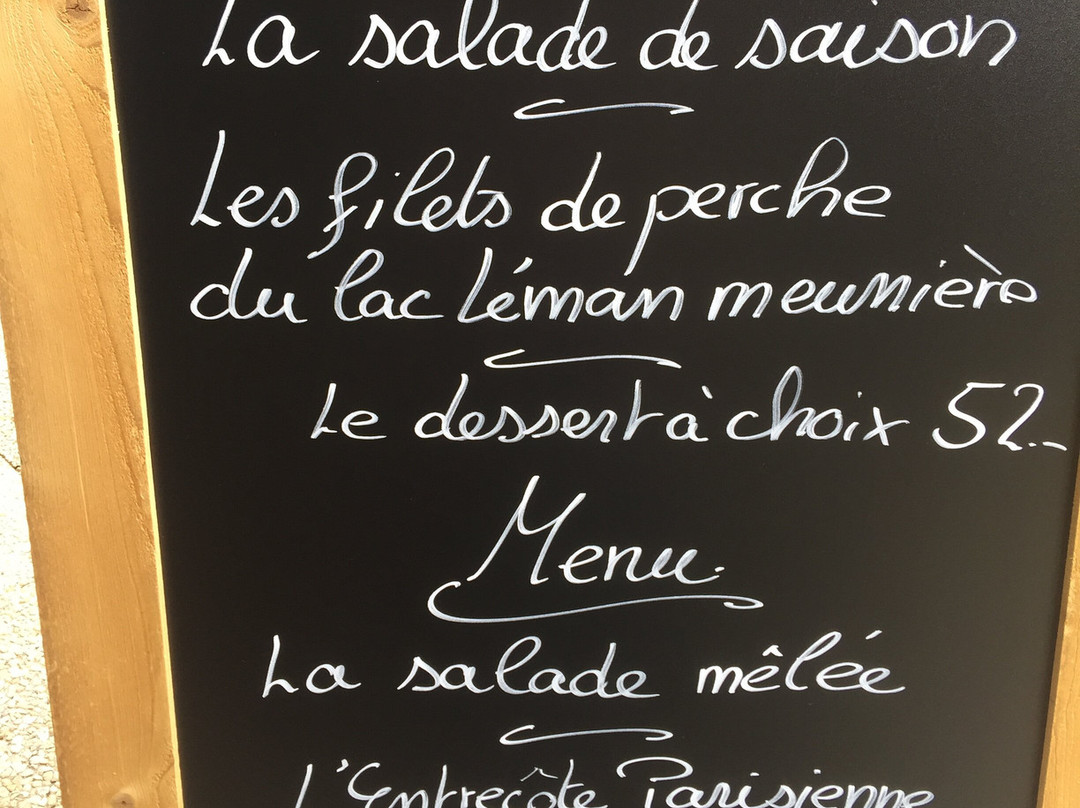 La salade de saison
Les filets de perche
du lac Léman meunière
Le dessert à choix 52.-
Menu
La salade mêlée
L'Entrecôte Parisienne